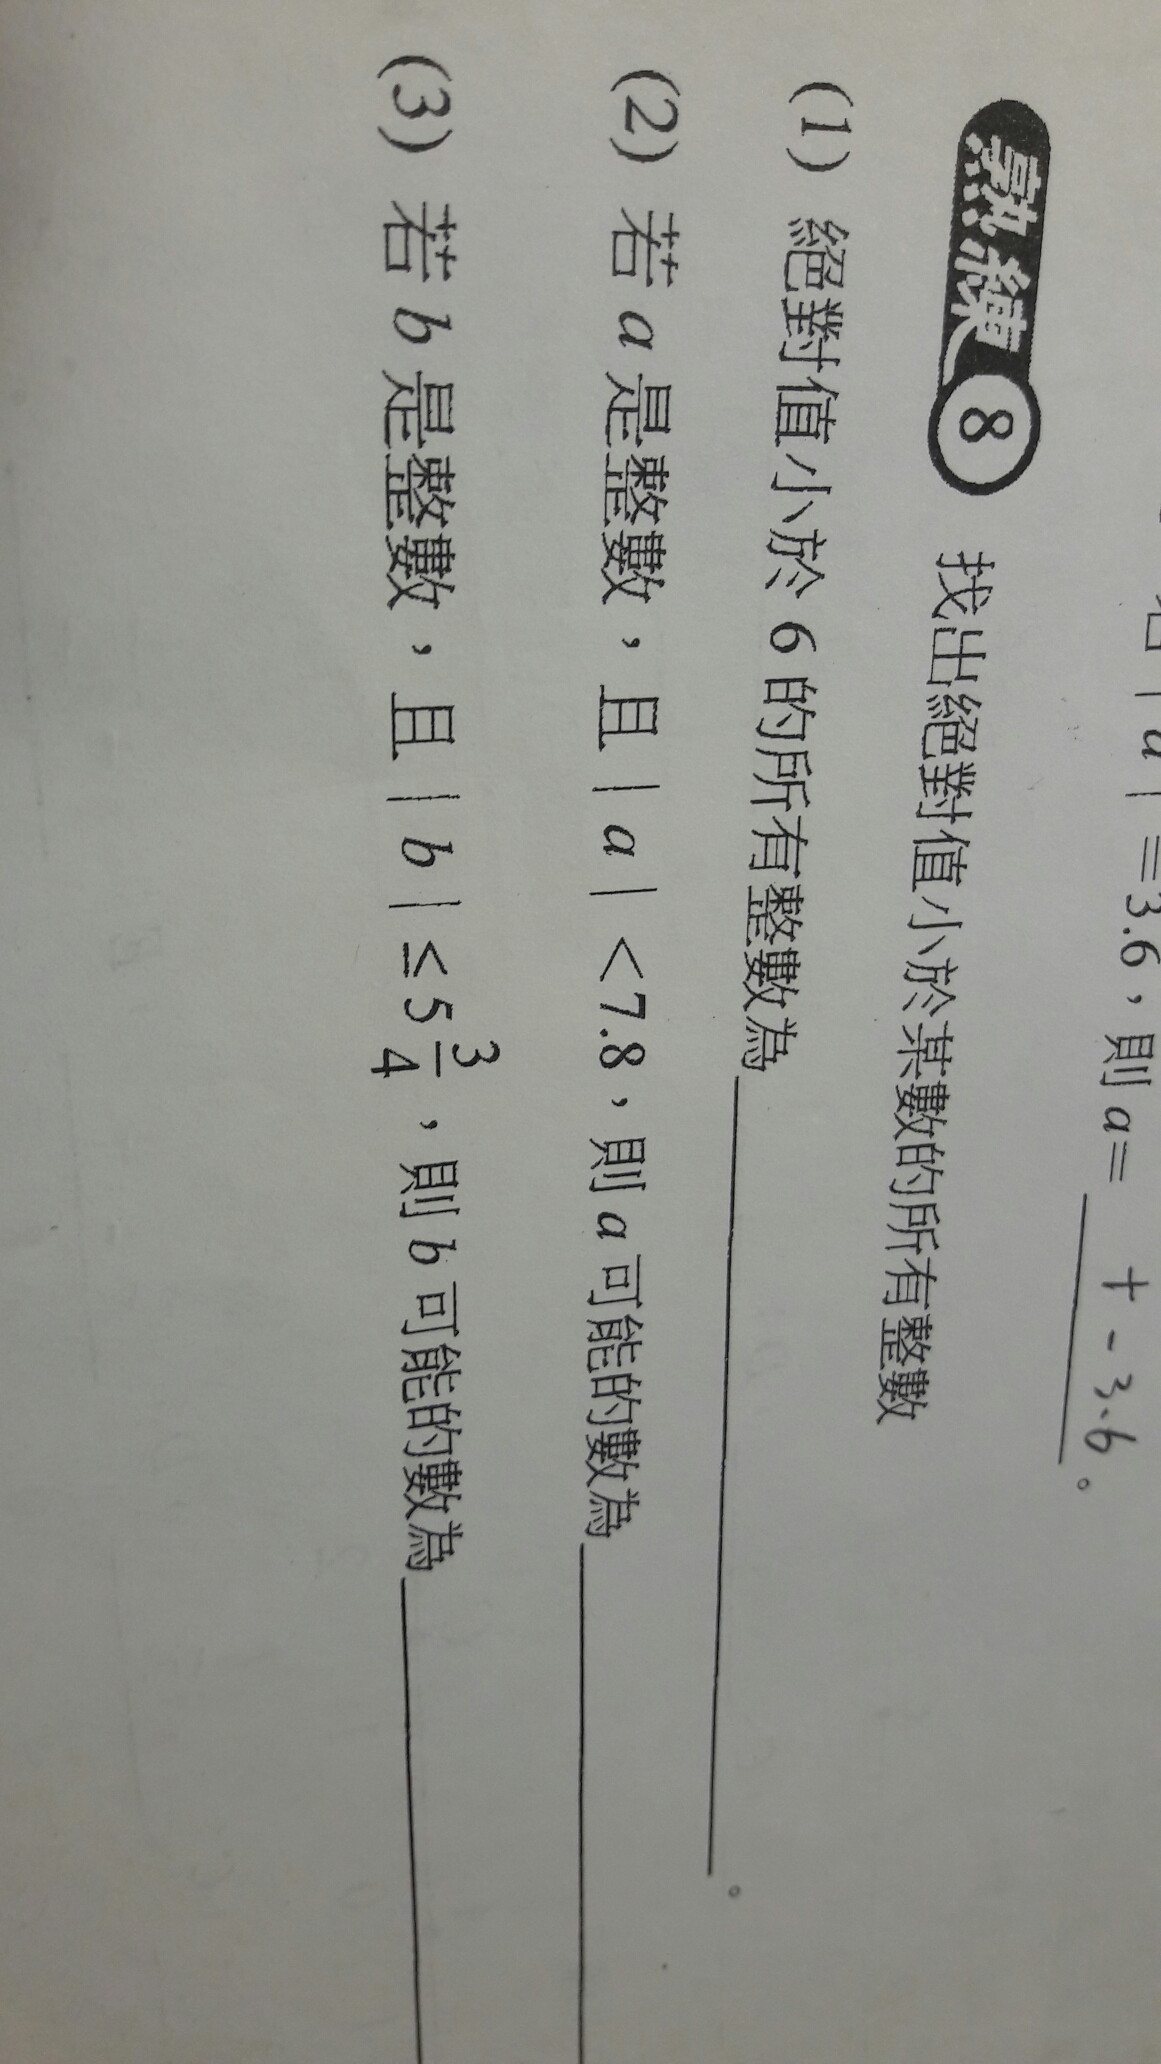 |a|=3.6，則a= + - 3.6 。
熟練 8 找出絕對值小於某數的所有整數
(1) 絕對值小於6的所有整數為 。
(2) 若a是整數，且|a|<7.8，則a可能的數為
(3) 若b是整數，且|b|≤5 3/4，則b可能的數為